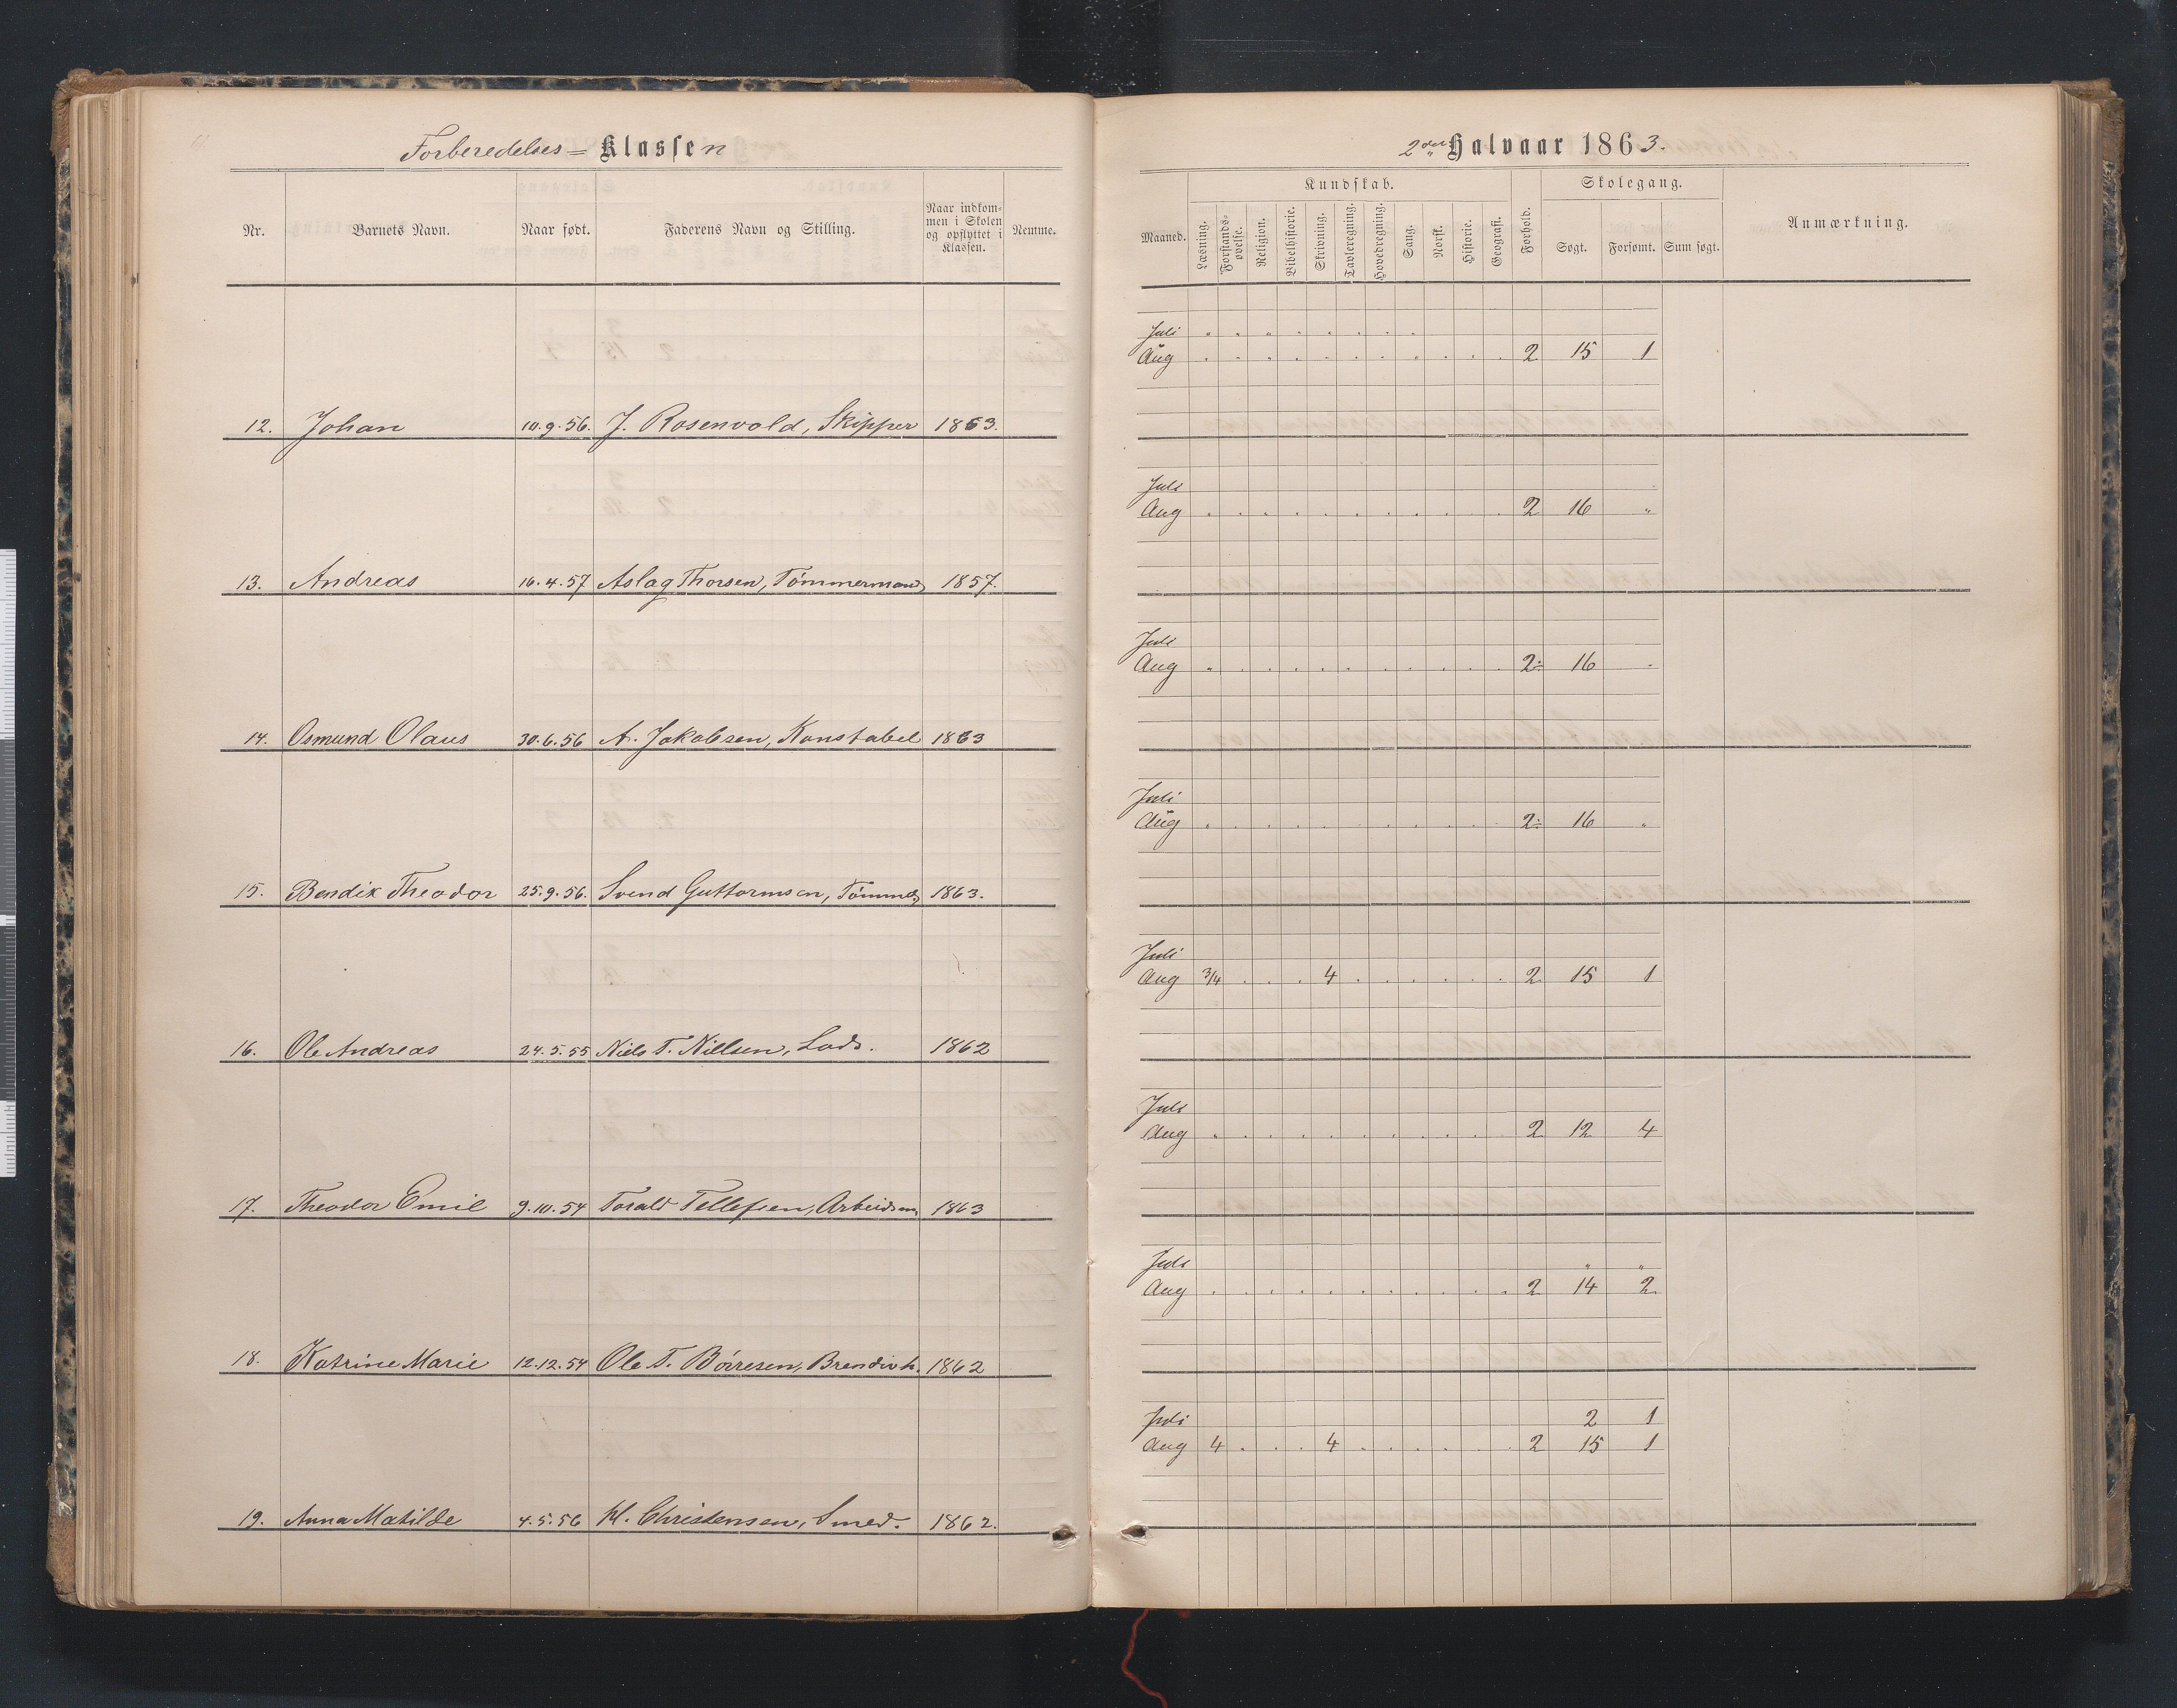 Forberedelses= Klassen
Nr. Barnets Navn. Naar født. Faderens Navn og Stilling. Naar indkom-
men i Skolen
og opflyttet i
Klassen. Nemme.
12. Johan 10.9.56. J. Rosenvold, Skipper 1863.
13. Andreas 16.4.57 Aslag Thorsen, Tømmermand 1857.
14. Osmund Olaus 30.6.56 A. Jakobsen, Konstabel 1863
15. Bendik Theodor 25.9.56. Svend Guttormsen, Tømmer 1863.
16. Ole Andreas 24.5.55 Niels T. Nillsen, Lods. 1862
17. Theodor Emil 9.10.54 Torald Tellefsen, Arbeidsm 1863
18. Katrine Marie 12.12.54 Ole T. Børresen, 1862
19. Anna Matilde 4.5.56 Kl. Christensen, Smed. 1862.
2den Halvaar 1863.
Maaned. Kundskab. Forhold. Skolegang. Anmærkning.
Læsning. Forstands-
øvelse. Religion. Bibelhistorie. Skrivning. Tavleregning. Hovedregning. Sang. Norsk. Historie. Geografi. Søgt. Forsømt. Sum søgt.
Juli
Aug 2 15 1
Juli
Aug 2 16 "
Juli
Aug 2 16
Juli
Aug 2 16 "
Juli
Aug 3/4 4 2 15 1
Juli
Aug 2 12 4
Juli " "
Aug 2 14 2
Juli 2 1
Aug 4 4 2 15 1